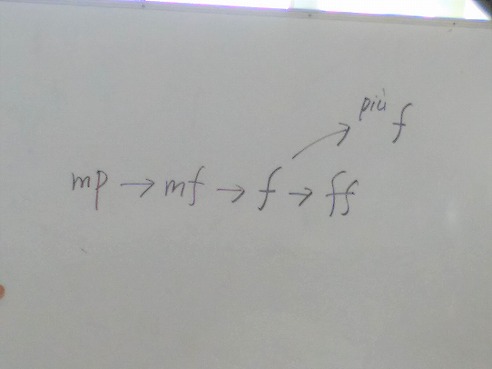 più f
mp → mf → f → ff